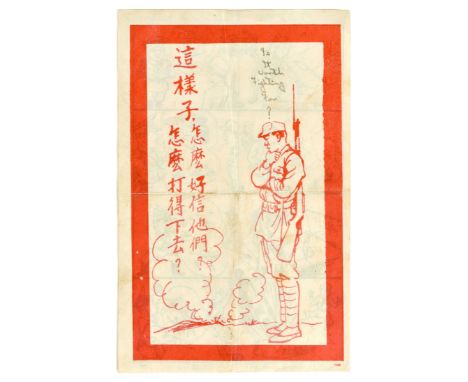 這樣子、
怎麼好信他們？
怎麼打得下去？
Is
It
worth
Fighting
For
?